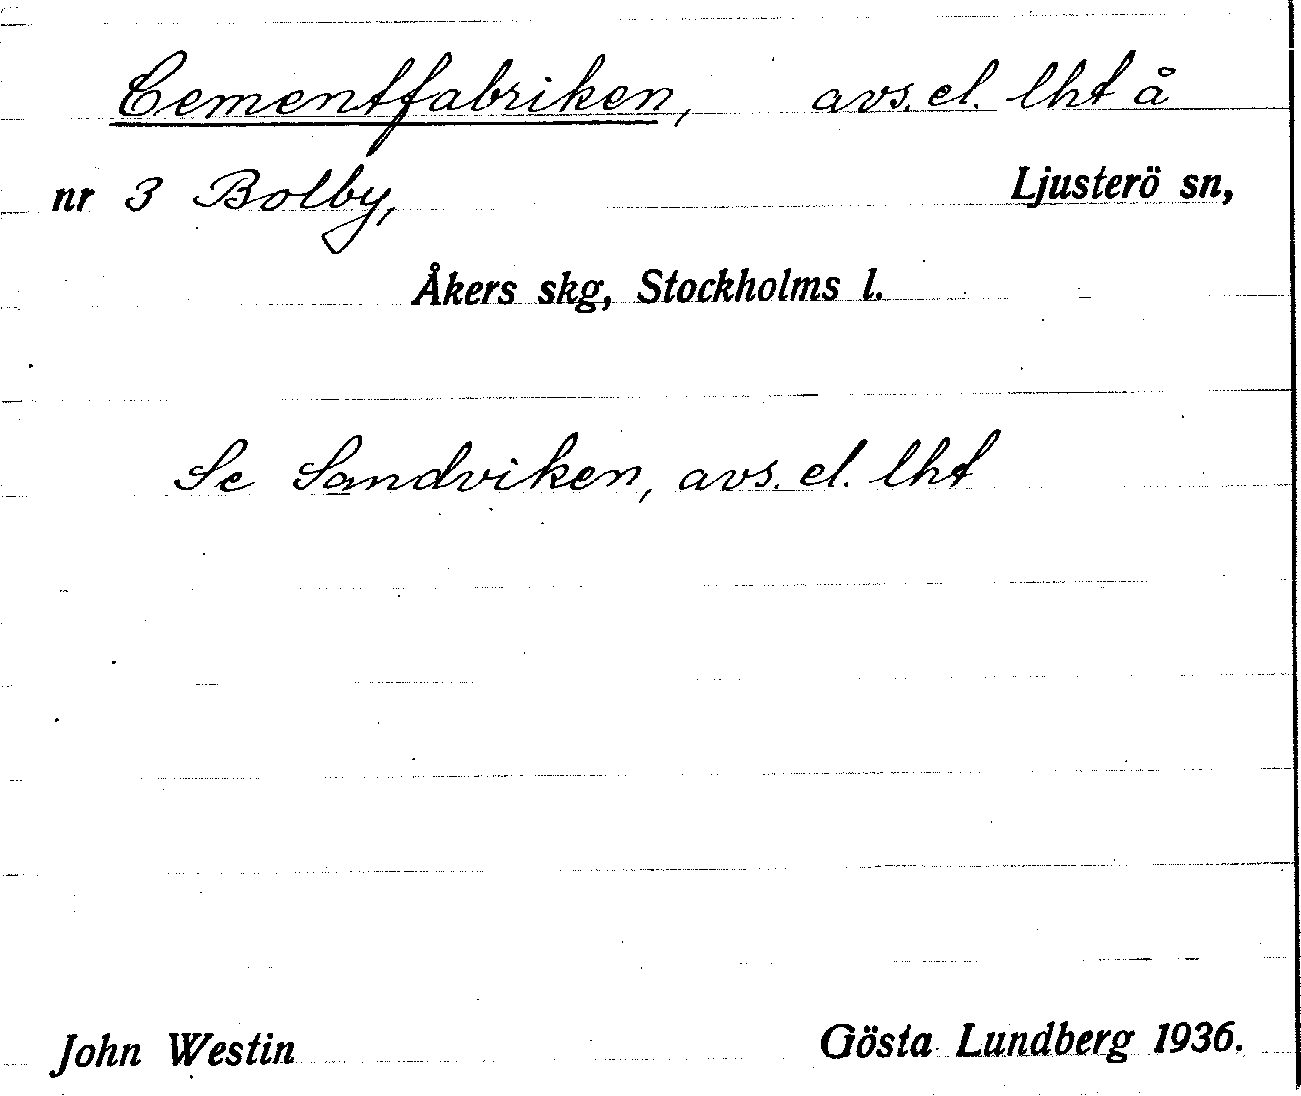 Cementfabriken, avs. el. lht å
nr 3 Bolby, Ljusterö sn,
Åkers skg, Stockholms l.
Se Sandviken, avs. el. lht
John Westin Gösta Lundberg 1936.